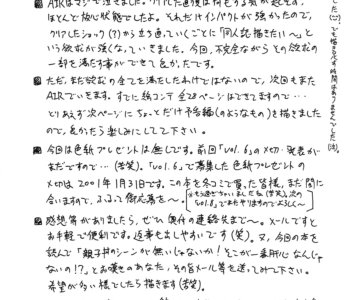 AIRはマジで泣きました。クリアした直後は何をする気が起きず、
ほとんど放心状態でしたよ。それだけインパクトが強かったので、
クリアしたショック(?)から立ち直っていくごとに「同人誌描きたい〜」と
いう欲求が強くなっていきました。今回、不完全ながらその欲求の
一部を満たす事ができて良かったです。
ただ、まだ欲求の全てを満たしたわけではないので、次回もまた
AIRでいきます。すでに絵コンテ全28ページはできてますので…
とりあえず次ページにちょっとだけ予告編(のようなもの)を描きました
ので、良かったら楽しみにしてて下さい。
今回は色紙プレゼントは無しです。前回「vol.6」の〆切・発表が
まだですので…(苦笑)。「vol.6」で募集した色紙プレゼントの
〆切は2001年1月31日です。この本を冬コミで買った皆様、まだ間に
合いますので、ふるって御応募を〜
感想等がありましたら、ぜひ奥付の連絡先まで〜。メールですと
お手軽で便利です。返事も出しやすいです(笑)。又、今回の本を
読んで「親子丼のシーンが無いじゃないか!そこが一番肝心なんじゃ
ないの!?」とお嘆きのあなた、その旨メール等を送ってみて下さい。
希望が多い様でしたら描きます(苦笑)。
でも描く時間はありませんでした(泣)。